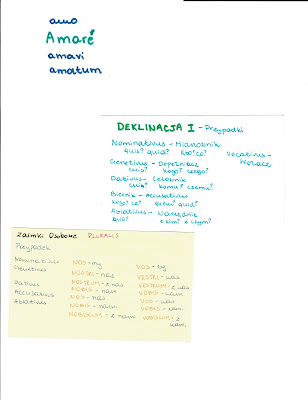 amo
Amaré
amavi
amatum
DEKLINACJA I - Przypadki
Nominativus - Mianownik
quis? quid? Kto? co?
Vocativus - Wołacz
Genetivus - Dopełniacz
cuius? Kogo? czego?
Dativus - Celownik
cui? komu? czemu?
Biernik - Accusativus
kogo? co? quem? quid?
Ablativus - Narzędnik
quo? z kim? z czym?
Zaimki Osobowe PLURALIS
Przypadek
Nominativus NOS - my VOS - wy
Genetivus NOSTRI - nas VESTRI - was
NOSTRUM - z nas VESTRUM - z was
Dativus NOBIS - nam VOBIS - wam
Accusativus NOS - nas VOS - was
Ablativus NOBIS - nami VOBIS - wami
NOBISCUM - z nami VOBISCUM - z wami